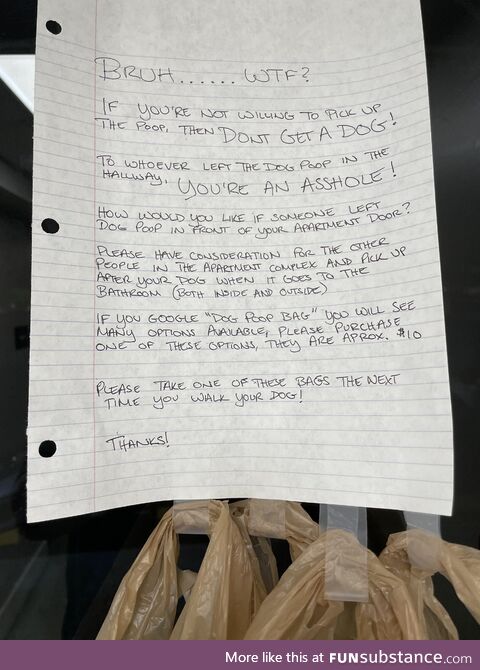 BRUH...... WTF?
IF YOU'RE NOT WILLING TO PICK UP
THE POOP, THEN DONT GET A DOG!
TO WHOEVER LEFT THE DOG POOP IN THE
HALLWAY, YOU'RE AN ASSHOLE!
HOW WOULD YOU LIKE IF SOMEONE LEFT
DOG POOP IN FRONT OF YOUR APARTMENT DOOR?
PLEASE HAVE CONSIDERATION FOR THE OTHER
PEOPLE IN THE APARTMENT COMPLEX AND PICK UP
AFTER YOUR DOG WHEN IT GOES TO THE
BATHROOM (BOTH INSIDE AND OUTSIDE)
IF YOU GOOGLE "DOG POOP BAG" YOU WILL SEE
MANY OPTIONS AVAILABLE, PLEASE PURCHASE
ONE OF THESE OPTIONS, THEY ARE APROX. $10
PLEASE TAKE ONE OF THESE BAGS THE NEXT
TIME YOU WALK YOUR DOG!
THANKS!
More like this at FUNsubstance.com